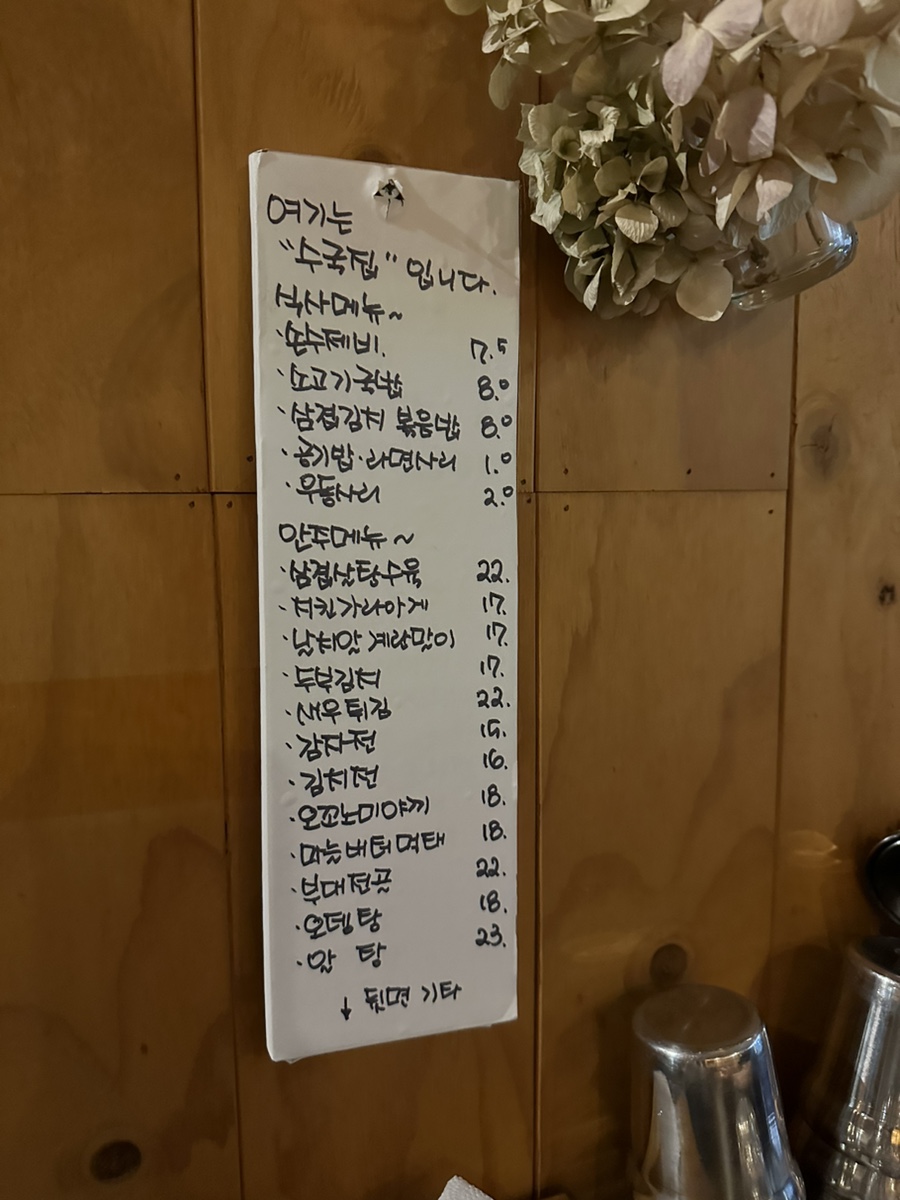 여기는
"수국집" 입니다.
식사메뉴~
·손수제비. 7.5
·소고기국밥 8.0
·삼겹김치 볶음밥 8.0
·공기밥·라면사리 1.0
·우동사리 2.0
안주메뉴~
·삼겹살탕수육 22.
·치킨가라아게 17.
·날치알 계란말이 17.
·두부김치 17.
·새우튀김 22.
·감자전 15.
·김치전 16.
·오꼬노미야끼 18.
·마늘버터먹태 18.
·부대전골 22.
·오뎅탕 18.
·알 탕 23.
↓ 뒷면 기타